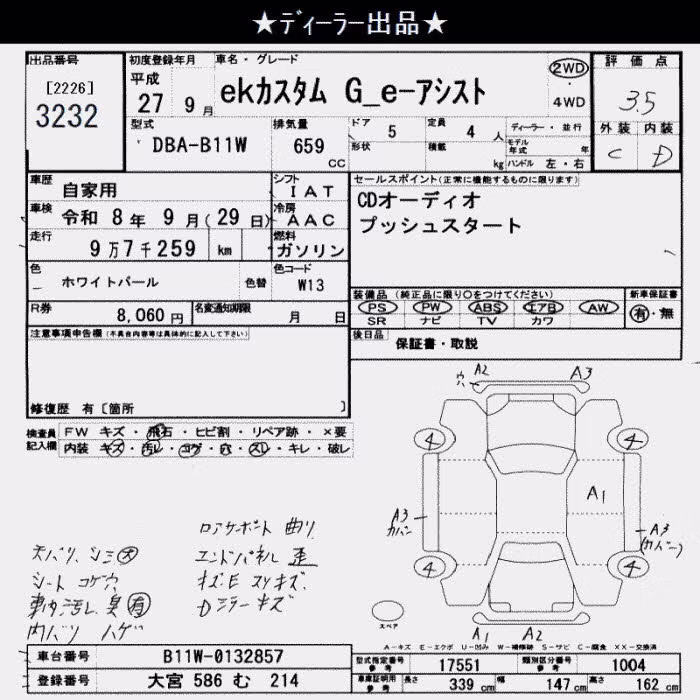 ★ディーラー出品★
出品番号
[2226]
3232
初度登録年月
平成
27 9月
車名・グレード
ekカスタム G_e-アシスト
2WD
・
4WD
評価点
3.5
外装 内装
C D
型式
DBA-B11W
排気量
659
CC
ドア 5
形状
定員 4 人
積載 kg
ディーラー・並行
モデル年式 年
ハンドル 左・右
車歴 自家用
車検 令和 8年 9月(29日)
走行 9万7千259 km
シフト
IAT
冷房
AAC
燃料
ガソリン
色 ホワイトパール 色替
色コード
W13
R券 8,060円
名変通知期限 月 日
セールスポイント(正常に機能するものに限ります)
CDオーディオ
プッシュスタート
装備品 (純正品に限り○をつけてください)
PS PW ABS エアB AW
SR ナビ TV カワ
新車保証書
有・無
後日品 保証書・取説
注意事項申告欄(不具合内容等は具体的に記入して下さい)
修復歴 有〔箇所 〕
検査員
記入欄
FW キズ・飛石・ヒビ割・リペア跡・×要
内装 キズ・汚レ・コゲ・穴・スレ・キレ・破レ
天バリ、シミ大
シート コゲ穴
車内汚レ 臭有
内バリ ハゲ
ロアサポート 曲リ
エンドパネル 歪
キズモ スリキズ.
Dミラー キズ
A2
穴
A3
4
4
A1
A3
カバー
A3
(カバー)
4
4
スペア
A1 A2
A-キズ E-エクボ U-凹み W-補修跡 S-サビ C-腐食 XX-交換済
車台番号 B11W-0132857
登録番号 大宮 586 む 214
型式指定番号
参考
17551
類別区分番号
参考
1004
車庫証明用
参考
長さ 339 cm 幅 147 cm 高さ 162 cm